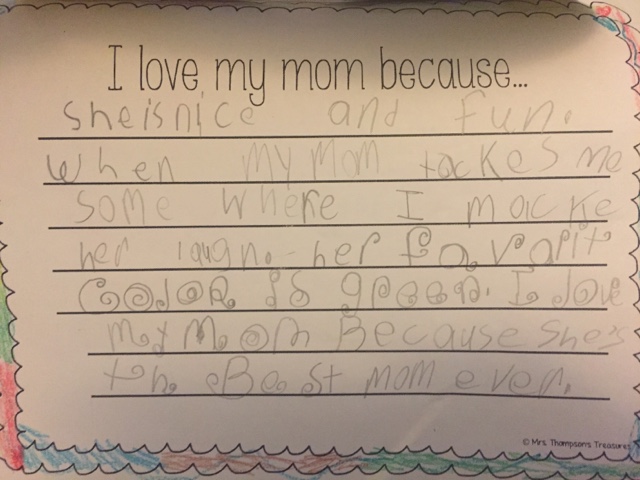 I love my mom because...
she is nice and fun.
When my mom tackes me
some where I macke
her laugh. her favorit
Color is green. I love
my mom Because she's
the Best mom ever.
© Mrs. Thompson's Treasures